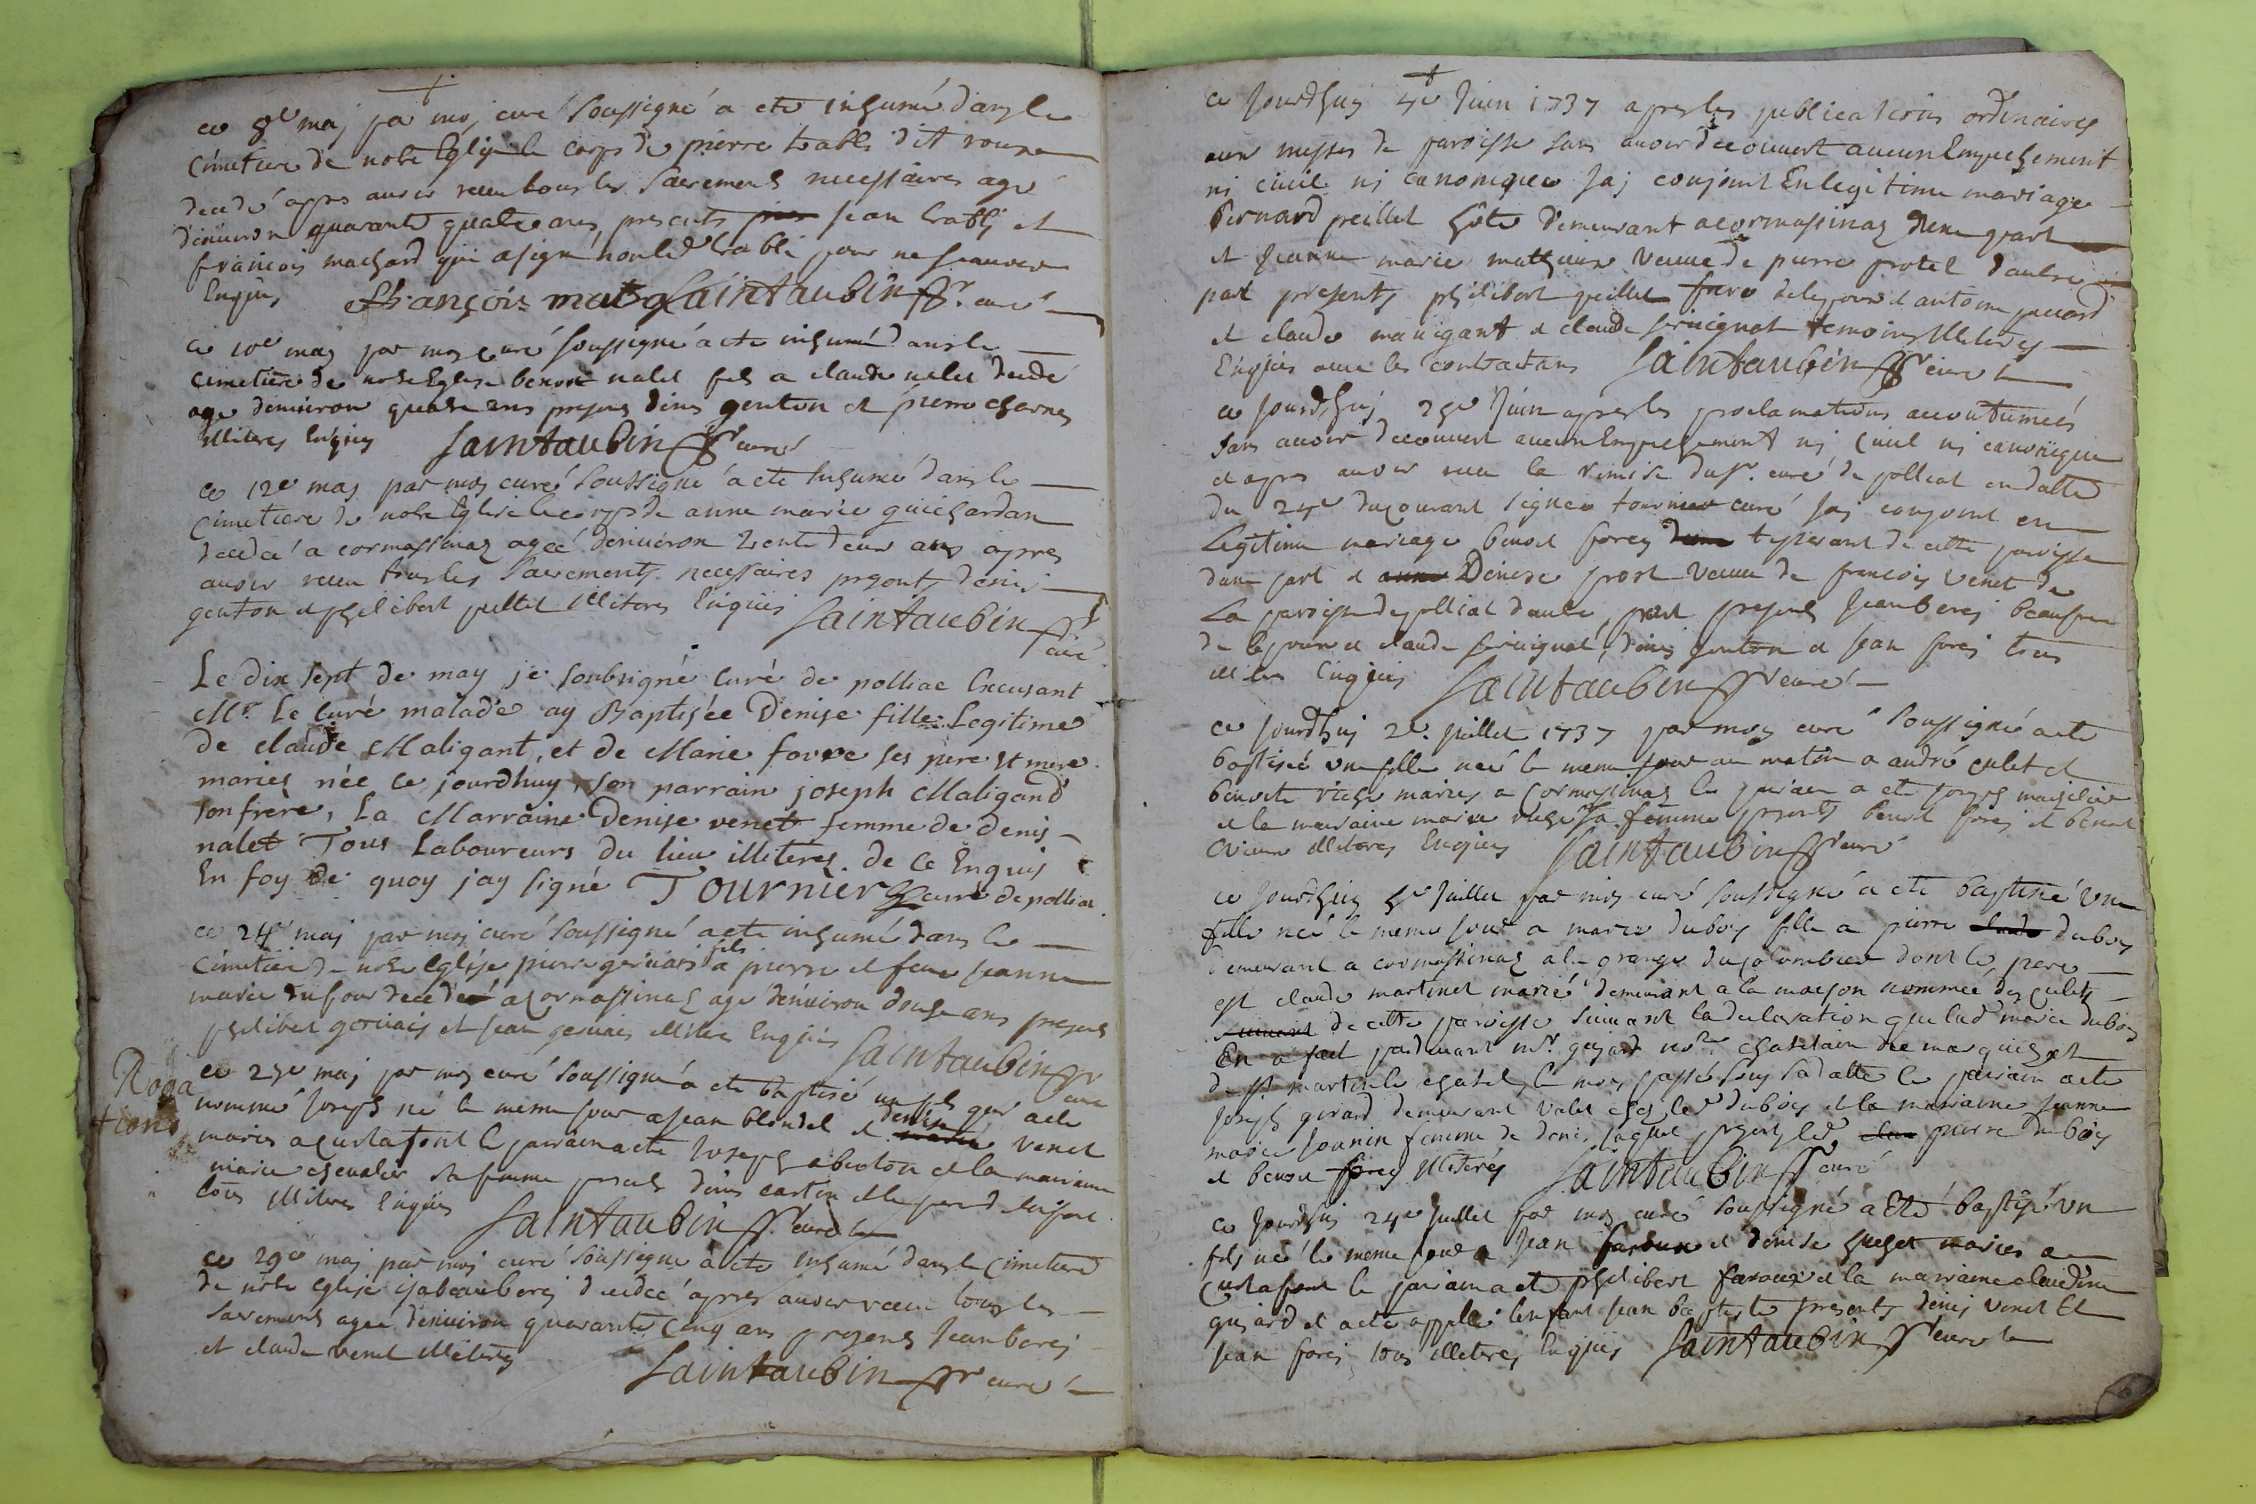 ce 8e maj par moj curé soussigné a eté inhumé dans le
cimetiere de notre Eglise le corps de pierre trabli dit
decedé apres auoir receu tous les sacrements necessaires agé
d'enuiron quarante quatre ans presents jean trabli et
francois machard qui a signé non led trabli pour ne scauoir
Enquis françois Saintaubin curé
ce 10e maj par moj curé soussigné a eté inhumé dans le
cimetiere de notre Eglise benoit nalet fils a claude nalet decedé
agé denuiron quatre ans presens denis genton et pierre charnes
illiteres Enquis Saintaubin curé
ce 12e maj par moj curé soussigné a eté Inhumé dans le
cimetiere de notre Eglise le corps de anne marie guichardan
decedeé a cormassinaz ageé denuiron trente deux ans apres
auoir receu tous les sacrements necessaires presents denis
genton et philibert peillet illiteres Enquis Saintaubin
curé
Le dix sept de may je soubsigné curé de polliac Excusant
Mr. Le curé malade ay Baptisée Denise fille Legitime
de claude Maligant, et de Marie fovre ses pere et mere
mariez née ce jourdhuy, son parrain joseph Maligand
son frere, La Marraine Denise venet femme de denis
nalet Tous Laboureurs du lieu illiterés de ce Enquis
En foy de quoy jay signé Tournier curé de polliac
ce 24e maj par moj curé soussigné a eté inhumé dans le
cimetiere de notre Eglise pierre geruais fils a pierre et feue jeanne
marie dufour decedé a cormassinaz agé denuiron douse ans presens
philibert geruais et jean geruais illiteres Enquis Saintaubin
curé
Rogations
ce 25e maj par moj curé soussigné a eté baptisé un fils qui a eté
nommé joseph né le meme jour a jean blondel et denise venet
mariés a curtafont le parrain a eté joseph et la marraine
marie cheualier sa femme presents denis
tous illiteres Enquis Saintaubin curé
ce 29e maj par moj curé soussigné a eté inhumé dans le cimetiere
de notre Eglise isabeau borej decedeé apres auoir receu tous les
sacrements ageé denuiron quarante cinq ans presens jean borej
et claude venet illiteres
Saintaubin curé
ce jourdhuj 4e Juin 1737 apres les publications ordinaires
aux messes de paroisse sans auoir decouuert aucun Empeschement
ni ciuil ni canonique jaj conjoint En legitime mariage
bernard peillet hôte demeurant a cormassinaz dune part
et jeanne marie mathieu veuue de pierre protet daultre
part presents philibert peillet frere de lepoux et antoine
et claude maligant et claude temoins illiteres
Enquis auec les contractans Saintaubin curé
ce jourdhuj 25e Juin apres les proclamations accoutumeés
sans auoir decouuert aucun Empeschement ni ciuil ni canonique
et apres auoir receu la remise du sr. curé de polliat en datte
du 24e du courant signeé tournier curé jaj conjoint en
Legitime mariage benoit forej de cette paroisse
dune part et Denise veuue de francois venet de
La paroisse de polliat daultre part presens jean borej beaufrere
de lepoux et claude denis genton et jean forej tous
illiteres Enquis Saintaubin curé
ce jourdhuj 2e. juillet 1737 par moj curé soussigné a eté
baptiseé une fille neé le meme jour au matin a andré culet et
benoite mariés a cormassinaz le parrain a eté
et la marraine marie sa femme presents benoit forej et benoit
illiteres Enquis Saintaubin curé
ce jourdhuj juillet par moj curé soussigné a eté baptiseé une
fille neé le meme jour a marie dubois fille a pierre dubois
demeurant a cormassinaz a la grange du colombier dont le pere
est claude martinet marié demeurant a la maison nommée des culets
de cette paroisse suiuant la declaration que lad marie dubois
En a fait pardeuant chatelain
de st martin le chatel le mois passé le parrain a eté
joseph girard demeurant valet ches led dubois et la marraine jeanne
marie jouanin femme de denis presents led pierre dubois
et benoit forej illiterés Saintaubin curé
ce jourdhuj 24e juillet par moj curé soussigné a eté baptisé un
fils né le meme jour a jean et denise mariés a
curtafont le parrain a eté philibert et la marraine claudine
gujard et a eté appellé lenfant jean baptiste presents denis venet Et
jean forej tous illiteres Enquis Saintaubin curé